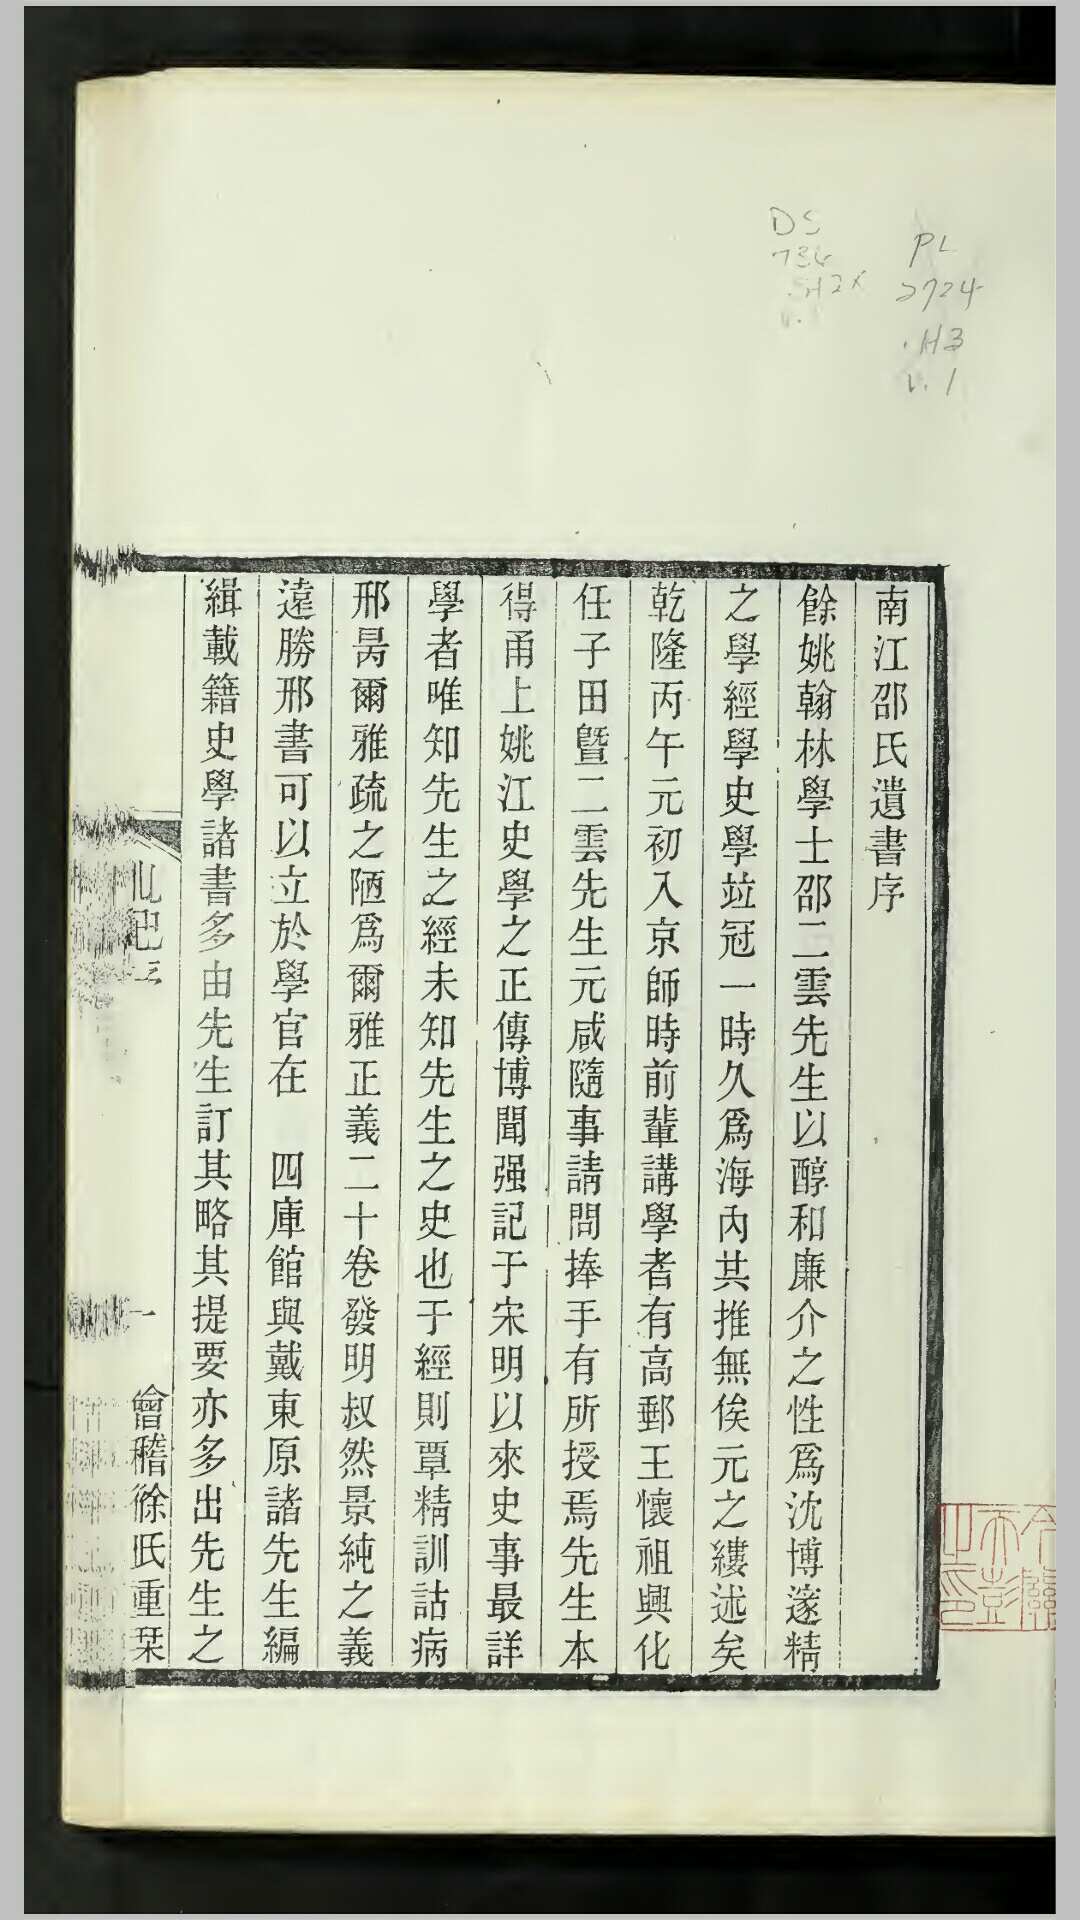 DS
734
.H2X
v.1
PL
2724
.H3
v.1
南江邵氏遺書序
餘姚翰林學士邵二雲先生以醇和廉介之性爲沈博邃精
之學經學史學竝冠一時久爲海內共推無俟元之縷述矣
乾隆丙午元初入京師時前輩講學者有高郵王懷祖興化
任子田曁二雲先生元咸隨事請問捧手有所授焉先生本
得甬上姚江史學之正傳博聞强記于宋明以來史事最詳
學者唯知先生之經未知先生之史也于經則覃精訓詁病
邢昺爾雅疏之陋爲爾雅正義二十卷發明叔然景純之義
遠勝邢書可以立於學官在　四庫館與戴東原諸先生編
緝載籍史學諸書多由先生訂其略其提要亦多出先生之
一
會稽徐氏重栞